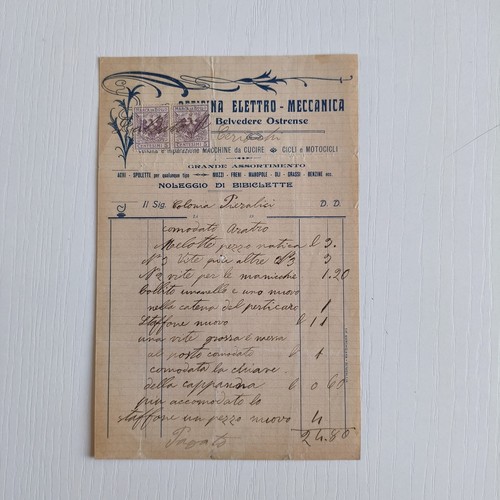 OFFICINA ELETTRO - MECCANICA
Belvedere Ostrense
MARCA DA BOLLO MARCA DA BOLLO
CENTESIMI 5 CENTESIMI 5
e riparazione MACCHINE da CUCIRE - CICLI e MOTOCICLI
GRANDE ASSORTIMENTO
AGHI - SPOLETTE per qualunque tipo MOZZI - FRENI - MANOPOLE - OLI - GRASSI - BENZINE ecc.
NOLEGGIO DI BIBICLETTE
Il Sig. Colonia Pieralisi D. D.
comodato Aratro
Melotte pezzo L 3.
N° 3 Vite più altre N° 3 3
N° 2 vite per le manicchie 1.20
e uno nuovo
nella catena del perticaro 1
Staffone nuovo L 11
una vite grossa e messa
al posto comodato L 1
comodata la chiave
della L 0 60
più accomodato lo
staffone un pezzo nuovo 4
24.80
Pagato